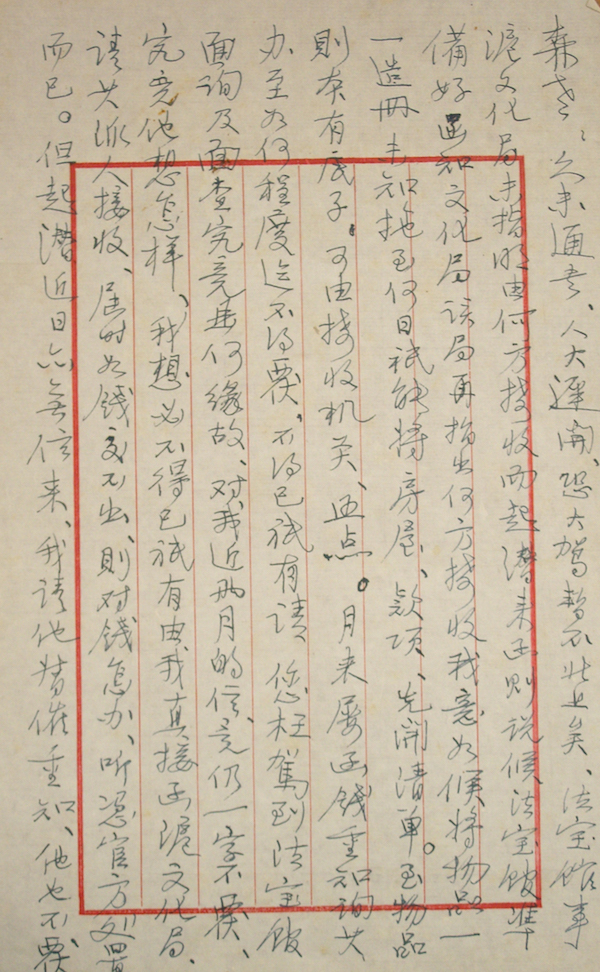 森老：久未通音、人大迟開、恐大驾暂不北上矣、法宝馆事
滬文化局未指明由何方接收而起潜来函则说候法宝馆準
備好函知文化局该局再指出何方接收我意如候将物品一
一造冊未知拖至何日衹能将房屋、款项、先開清单。至物品
則本有底子。可由接收机关、逐点。月来屡函钱重知询其
办至如何程度迄不得覆、不得已衹有请 您枉驾到法宝馆
面询及面查究竟毋何缘故、对我近两月的信竟仍一字不覆、
究竟他想怎样、我想必不得已衹有由我直接函滬文化局、
请其派人接收、届时如钱交不出、則对钱怎办、听凭官方处置
而已。但起潜近日亦無信来、我请他转催重知、他也不覆